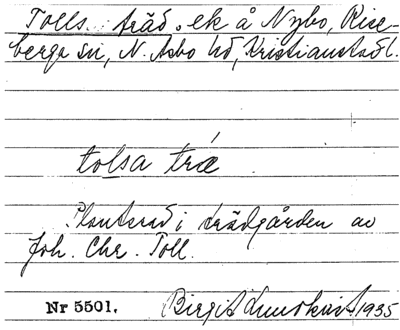 Tolls träd. ek å Nybo, Rise-
berga sn, N. Åsbo hd, Kristianstads l.
tolsa træ
Planterad i trädgården av
Joh. Chr. Toll.
Nr 5501. Birgit Lundkvist 1935